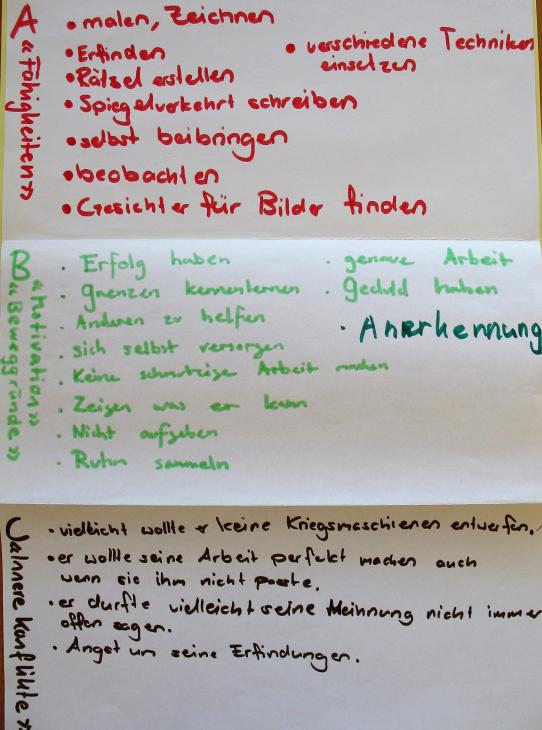 A
«Fähigkeiten»
• malen, Zeichnen
• Erfinden
• Rätsel erstellen
• Spiegelverkehrt schreiben
• selbst beibringen
• beobachten
• Gesichter für Bilder finden
• verschiedene Techniken
einsetzen
B
«Motivation»
«Beweggründe»
• Erfolg haben
• grenzen kennenlernen
• Anderen zu helfen
• sich selbst versorgen
• Keine schmutzige Arbeit machen
• Zeigen was er kann
• Nicht aufgeben
• Ruhm sammeln
• genaue Arbeit
• Geduld haben
• Anerkennung
Innere Konflikte»
• vielleicht wollte er keine Kriegsmaschienen entwerfen.
• er wollte seine Arbeit perfekt machen auch
wenn sie ihm nicht passte.
• er durfte vielleicht seine Meinnung nicht immer
offen sagen.
• Angst um seine Erfindungen.